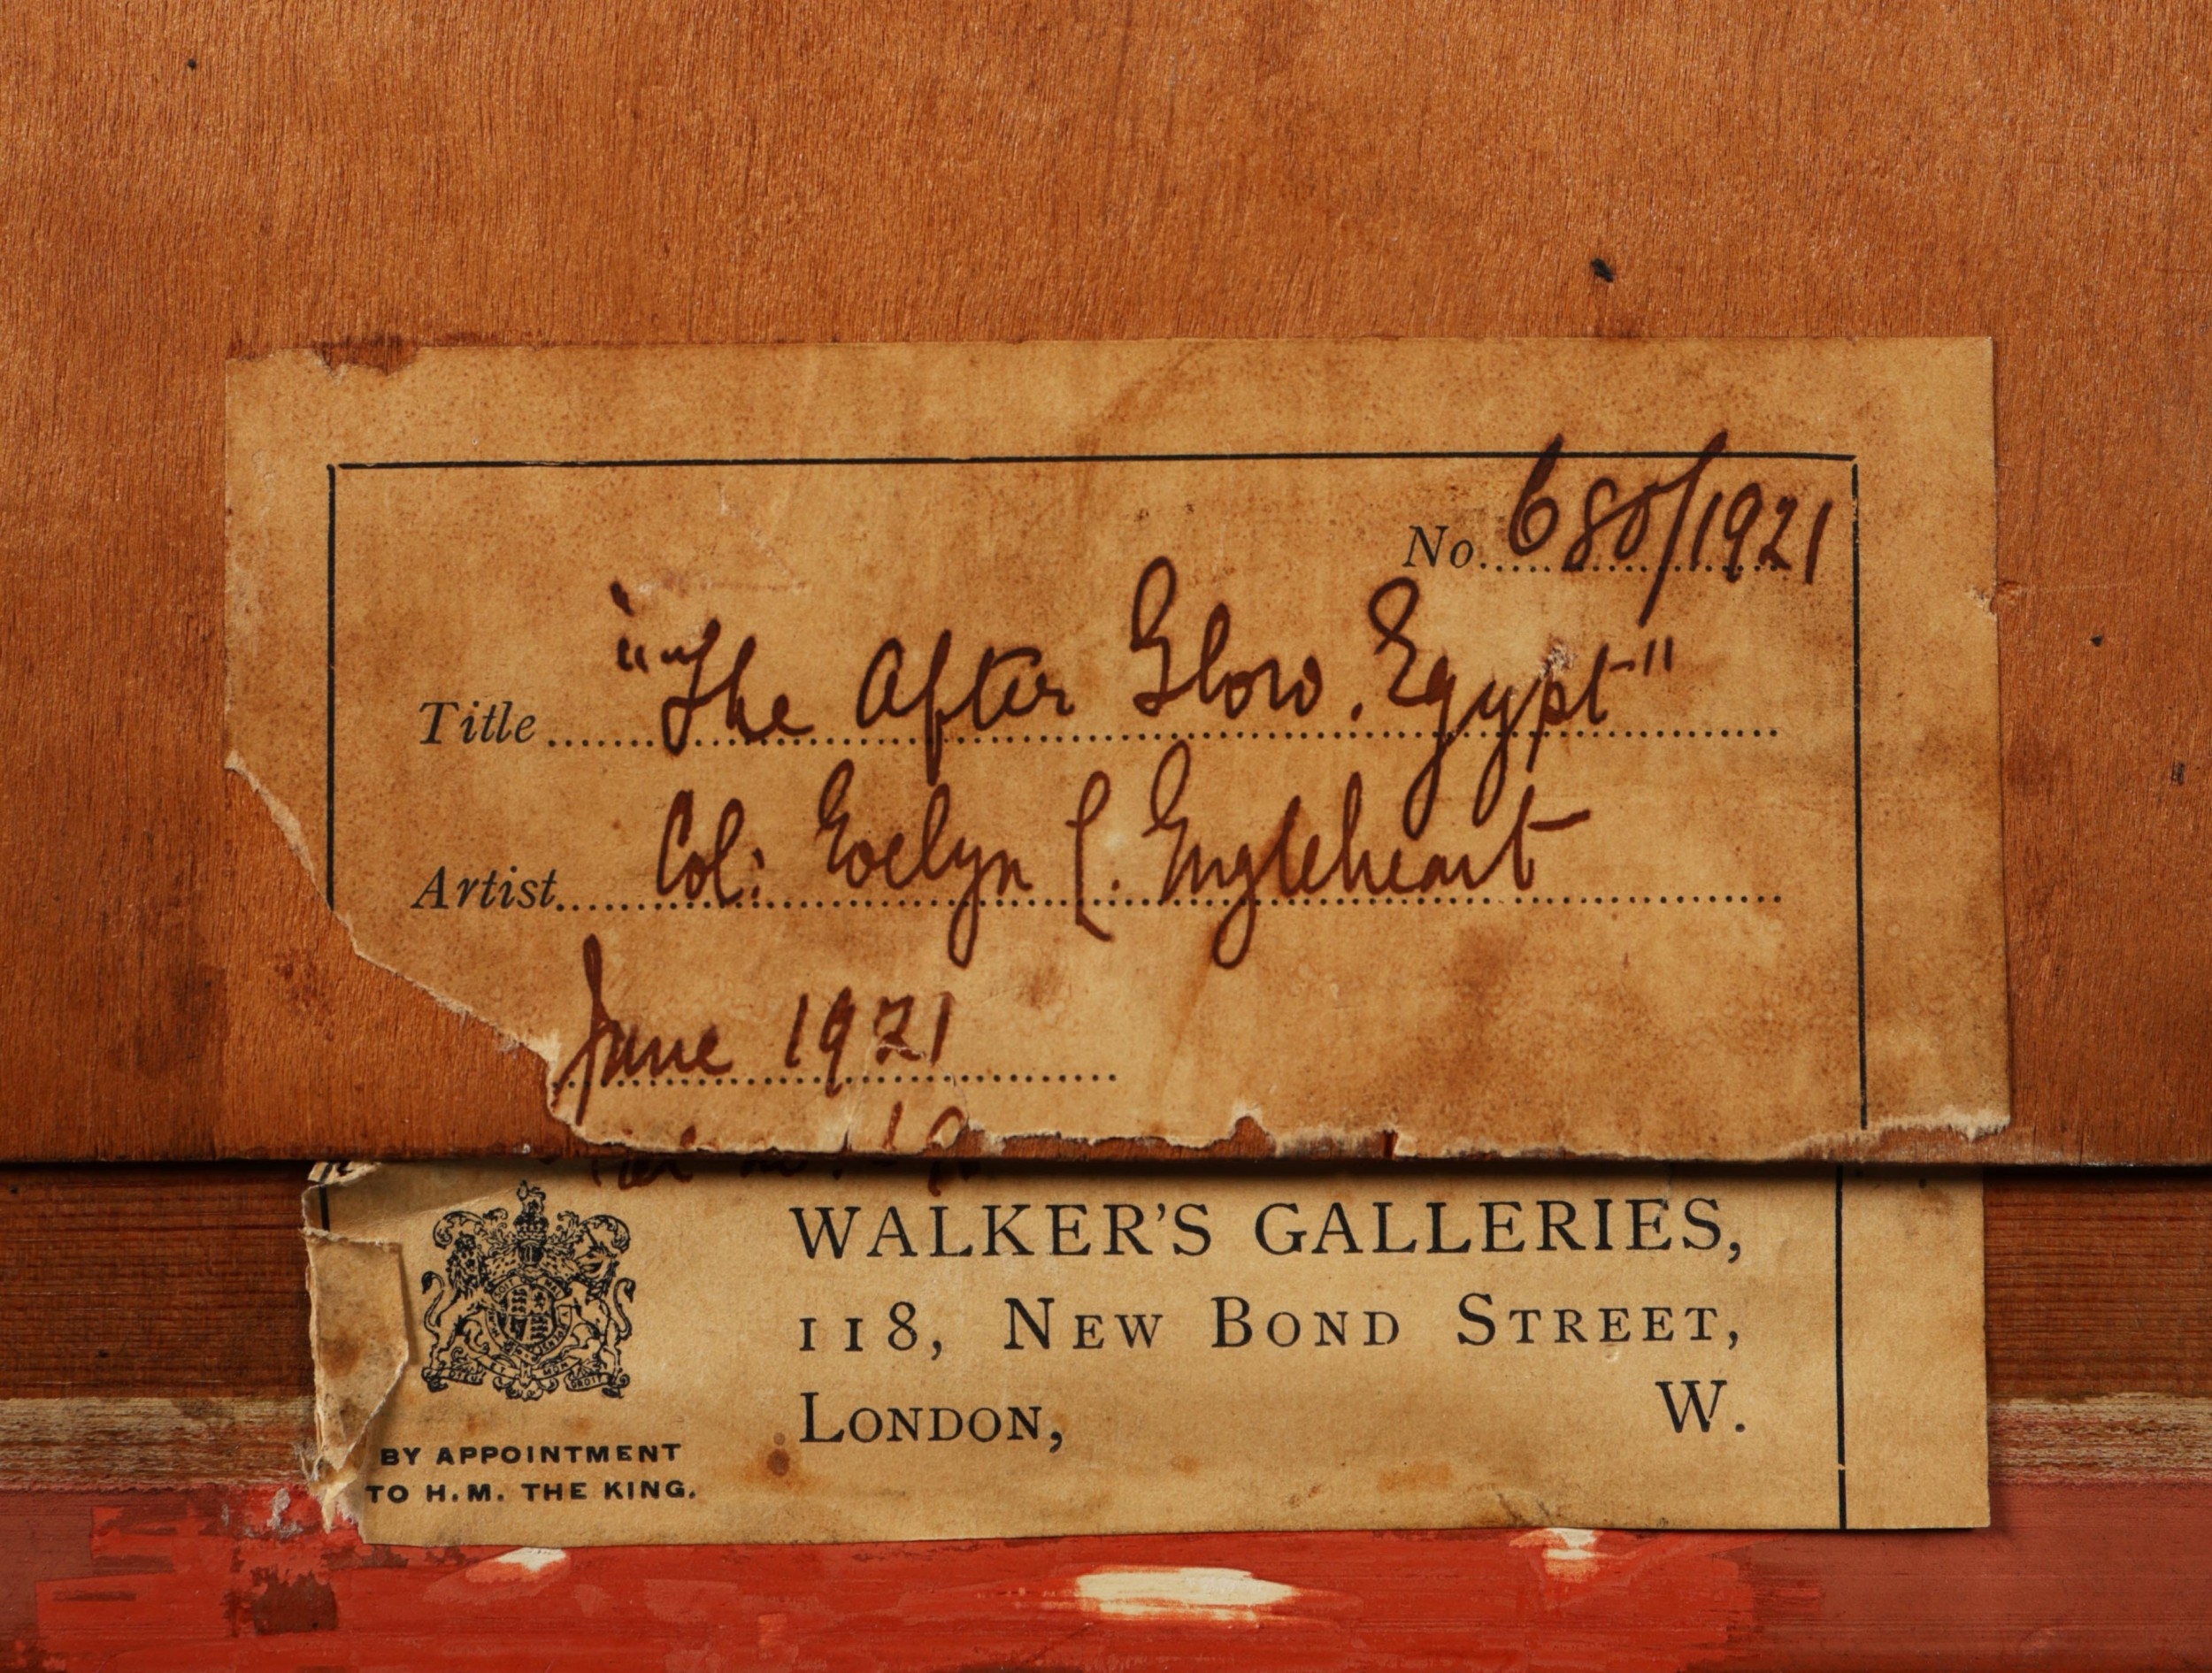 No. 680/1921
Title "The After Glow. Egypt"
Artist Col: Evelyn C. Engleheart
June 1921
WALKER'S GALLERIES,
118, NEW BOND STREET,
LONDON, W.
BY APPOINTMENT
TO H.M. THE KING.